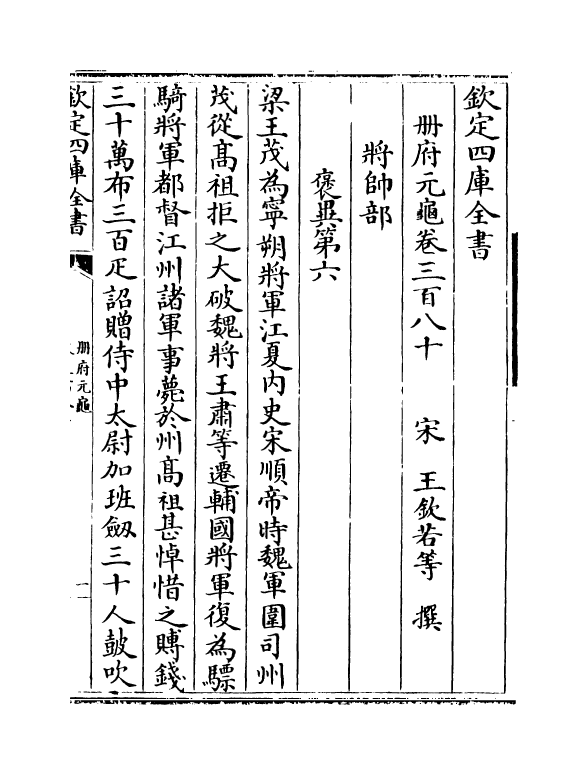 欽定四庫全書
册府元龜卷三百八十　宋　王欽若等　撰
將帥部
褒異第六
梁王茂為寧朔將軍江夏内史宋順帝時魏軍圍司州
茂從髙祖拒之大破魏將王肅等遷輔國將軍復為驃
騎將軍都督江州諸軍事薨於州髙祖甚悼惜之賻錢
三十萬布三百疋詔贈侍中太尉加班劔三十人鼓吹
欽定四庫全書
册府元龜